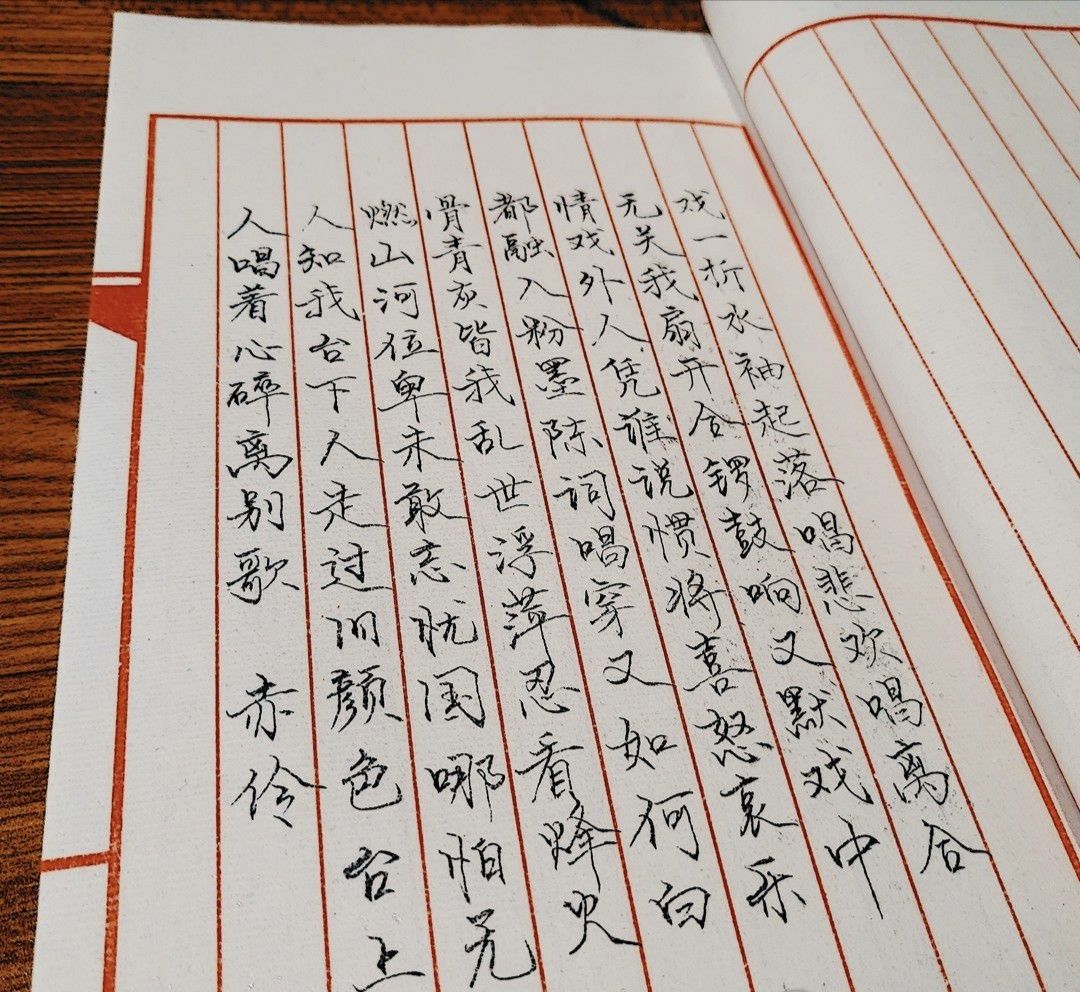 戏一折水袖起落唱悲欢唱离合
无关我扇开合锣鼓响又默戏中
情戏外人凭谁说惯将喜怒哀乐
都融入粉墨陈词唱穿又如何白
骨青灰皆我乱世浮萍忍看烽火
燃山河位卑未敢忘忧国哪怕无
人知我台下人走过旧颜色台上
人唱着心碎离别歌 赤伶